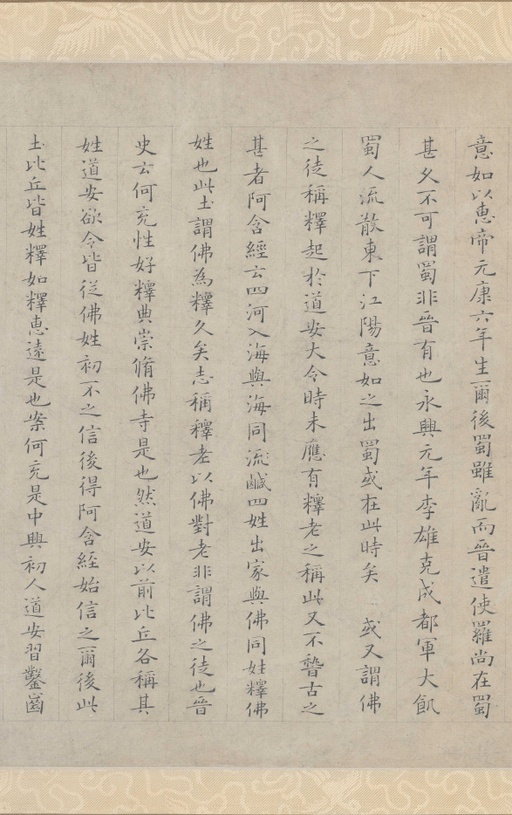 意如以惠帝元康六年生爾後蜀雖亂而晉遣使羅尚在蜀
甚久不可謂蜀非晉有也永興元年李雄克成都軍大飢
蜀人流散東下江陽意如之出蜀或在此時矣 或又謂佛
之徒稱釋起於道安大令時未應有釋老之稱此又不嘗古之
甚者阿含經云四河入海與海同流鹹四姓出家與佛同姓釋佛
姓也此土謂佛為釋久矣志稱釋老以佛對老非謂佛之徒也晉
史云何充性好釋典崇脩佛寺是也然道安以前比丘各稱其
姓道安欲令皆從佛姓初不之信後得阿含經始信之爾後此
土比丘皆姓釋如釋惠遠是也案何充是中興初人道安習鑿齒